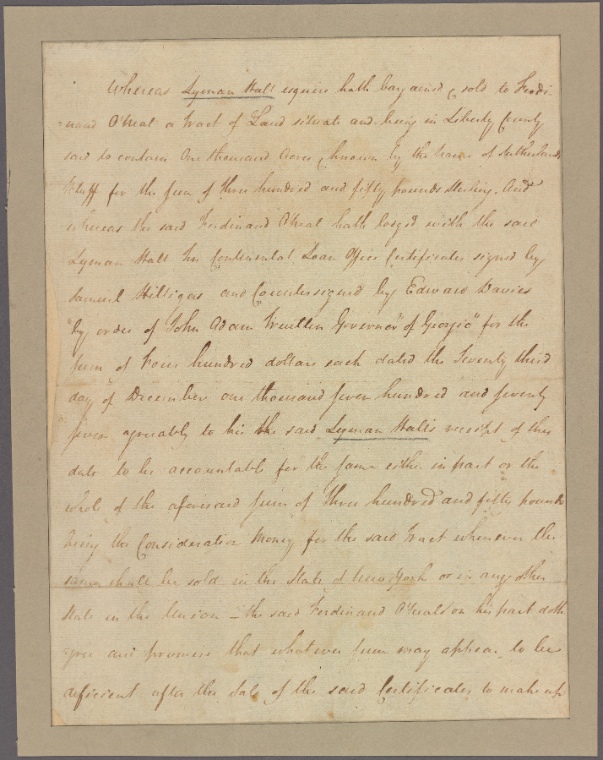 Whereas Lyman Hall esquire hath bargained & sold to Ferdi
nand ONeal a tract of Land situate and being in Liberty County
said to contain One thousand Acres, known by the name of Sutherlands
Bluff for the sum of three hundred and fifty pounds sterling. And
whereas the said Ferdinand ONeal hath lodged with the said
Lyman Hall Ten Continental Loan Office Certificates signed by
Samuel Hilligas and Countersigned by Edward Davies
"by order of John Adam Treutlen Governor of Georgia" for the
sum of Four hundred dollars each dated the Twenty third
day of December one thousand seven hundred and seventy
seven agreeably to his the said Lyman Hall's receipt of this
date to be accountable for the same either in part or the
whole of the aforesaid sum of three hundred and fifty pounds
being the Consideration Money for the said Tract whenever the
same shall be sold in the State of New York or in any other
State in the Union – the said Ferdinand ONeal on his part doth
give and promise that whatever sum may appear to be
deficient after the Sale of the said Certificates to make up